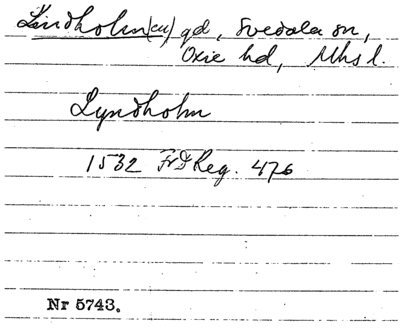 Lindholm(en) gd, Svedala sn,
Oxie hd, Mhs l.
Lyndholm
1532 Fr I Reg. 476
Nr 5743.